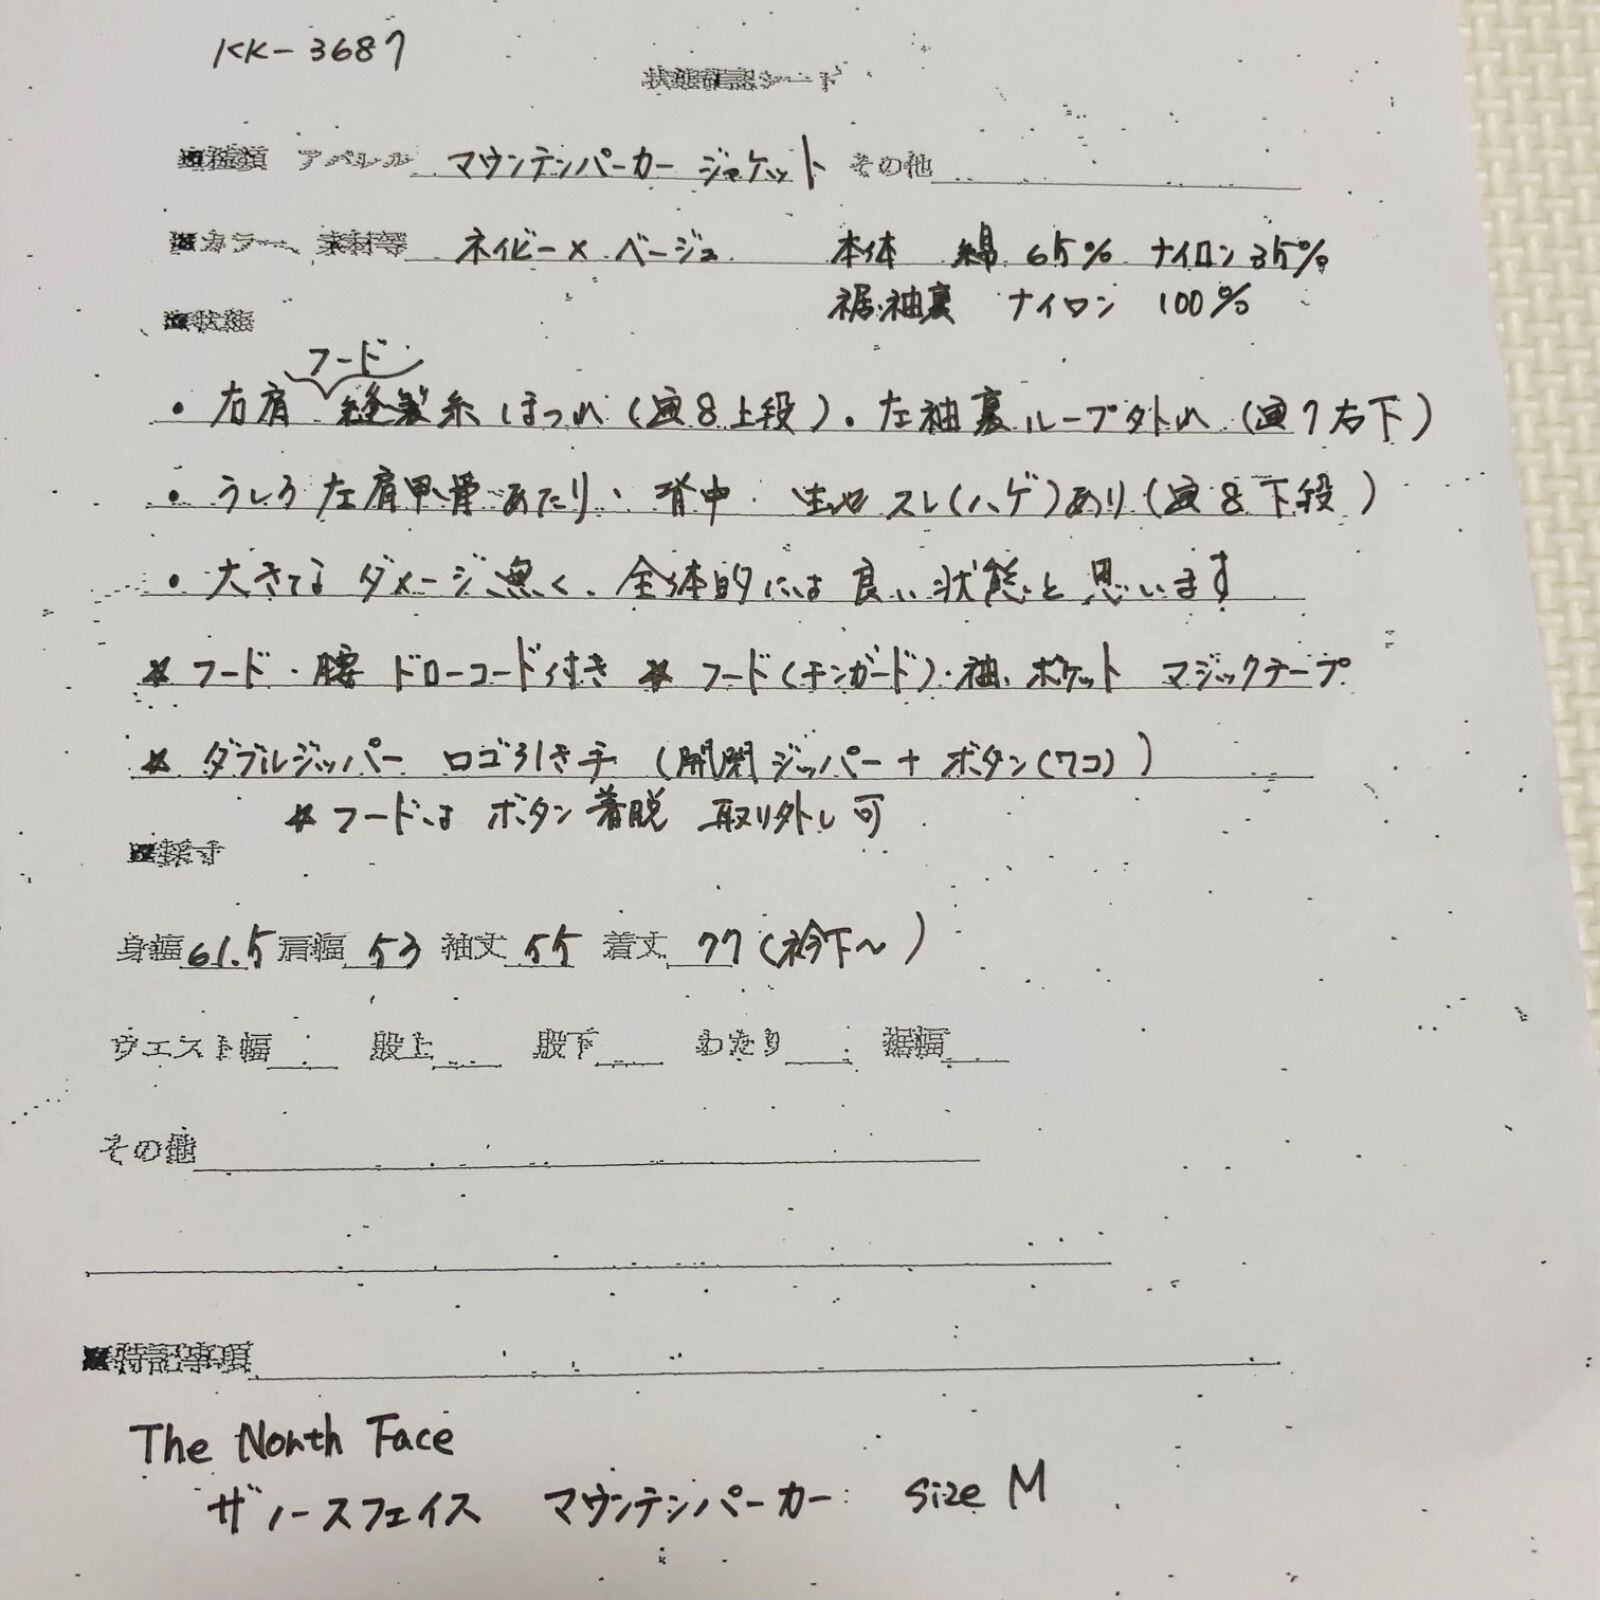 KK-3687
状態確認シート
■種類 アパレル マウンテンパーカー ジャケット その他
■カラー、素材等 ネイビー×ベージュ 本体 綿 65% ナイロン35%
裾・袖裏 ナイロン 100%
■状態
フード
・右肩 縫製糸ほつれ(画8上段)・左袖裏ループ外れ(画7右下)
・うしろ左肩甲骨あたり、背中・生地スレ(ハゲ)あり(画8下段)
・大きなダメージ無く、全体的には良い状態と思います
*フード・腰 ドローコード付き *フード(チンガード)・袖、ポケット マジックテープ
*ダブルジッパー ロゴ引き手(開閉ジッパー+ボタン(7コ))
*フードはボタン着脱 取り外し可
■採寸
身幅61.5 肩幅53 袖丈55 着丈77(衿下〜)
ウエスト幅 股上 股下 わたり 裾幅
その他
■特記事項
The North Face
ザノースフェイス マウンテンパーカー size M